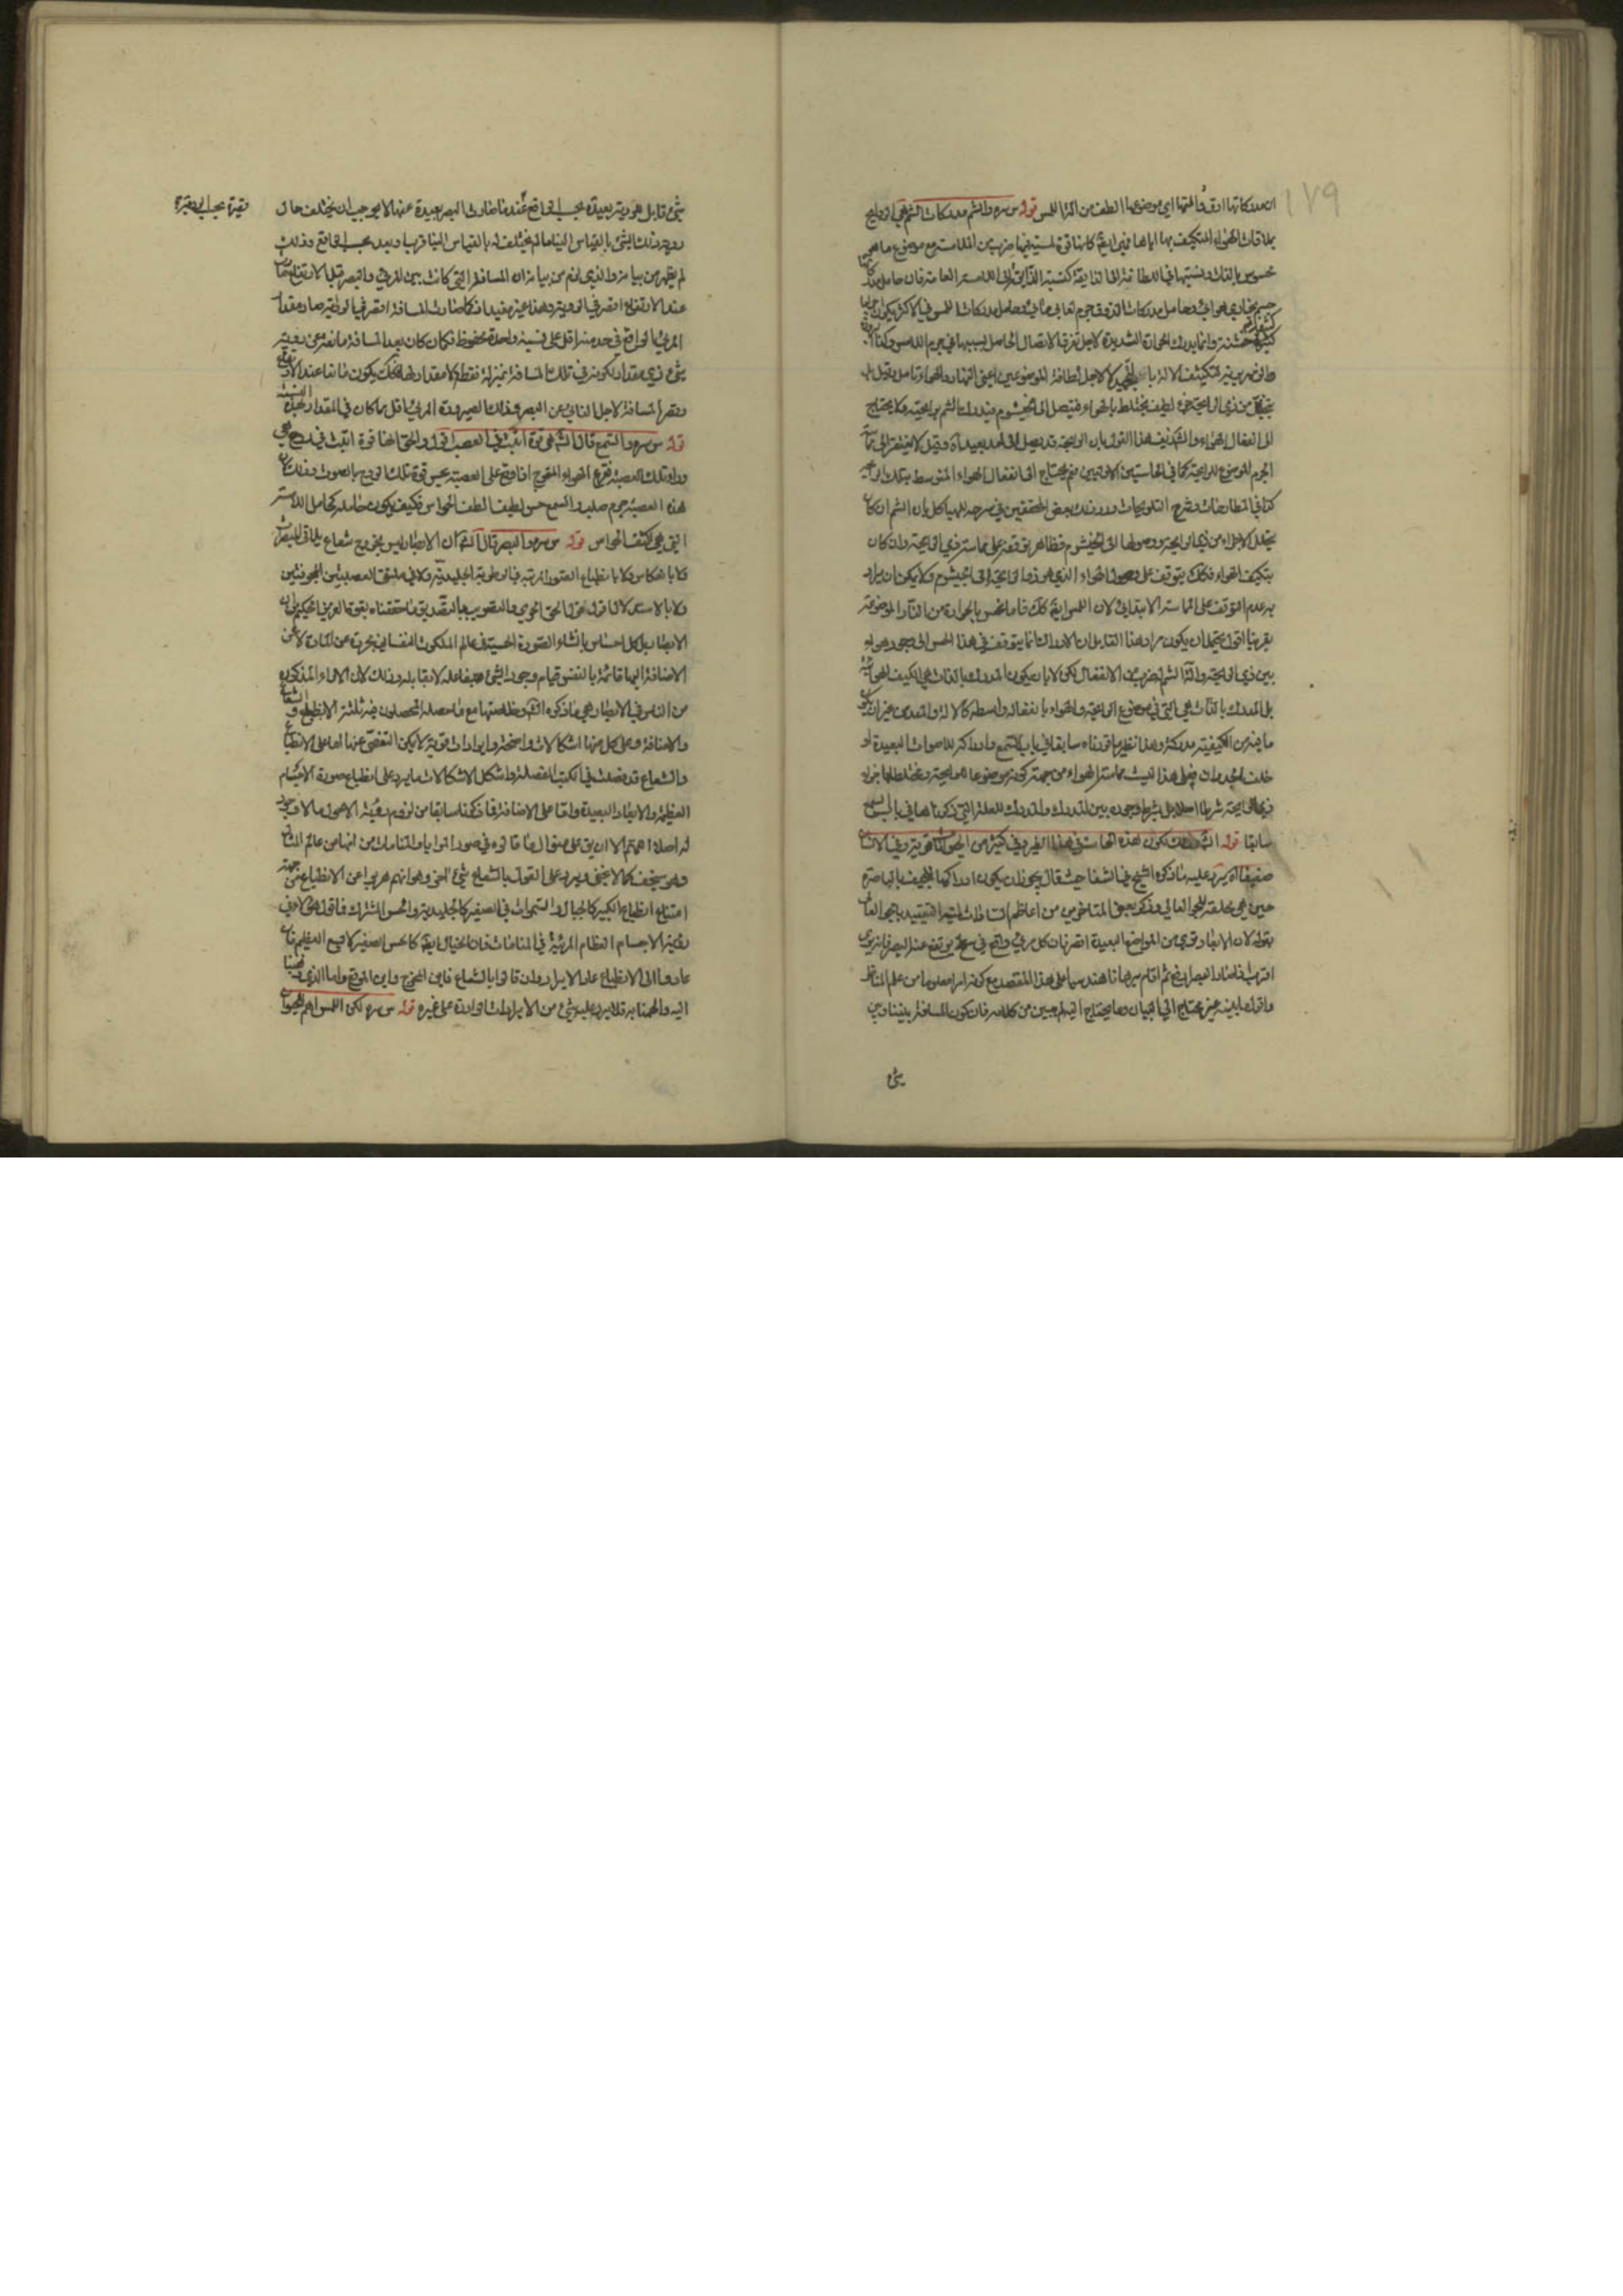 ١٧٩
ان مدركاتها ادق والمتها اي موضوعها الطف من آلة اللمس قوله س سره والشم مدركات الشم هي الروايح
بملاقات الهواء المتكيف بها اياها ففي ايضا كانها قوة لمسية فيها ضرب من الملامسة مع موضوع ما هي
محسوس بالذات ونسبتها في اللطافة الى الذايقة كنسبة الذايقة الى اللامسة العامة فان حامل
جسم بخاري هوائي وحامل مدركات الذوق جرم لعابي مائي وحامل مدركات اللمس في الاكثر يكون
خشنة وانما يدرك الحرارة الشديدة لاجل تفرق الاتصال الحاصل بسببها في جرم اللامس وكذا
لاجل لطافة الموضوعين اعني النار والهواء تامل وقيل بل
يتحلل من ذي الرايحة جزء لطيف يختلط بالهواء فيتصل الى الخيشوم فيدرك الشم برايحته ولا يحتاج
الى انفعال الهواء والشم لهذا القول بان الرايحة قد يصل الى امد بعيد آه وقيل لا يفتقر الى
الجرم الموضوع للرايحة كما في الحاستين الاوليين نعم يحتاج الى انفعال الهواء المتوسط بتلك
كذا في المطارحات وشرح التلويحات وردد ذلك بعض المحققين في شرحه للهياكل بان الشم ان كان
بتحلل الاجزاء من ذي الرايحة ووصولها الى الخيشوم فظاهر توقفه على مماسة ذي الرايحة وان كان
بتكيف الهواء فكذلك يتوقف على وصول الهواء الذي هو ذو الرايحة الى الخيشوم ولا يمكن ان يراد
به عدم التوقف على المماسة الابتدائي لان اللمس ايضا كذلك فاما نحس بالحرارة من النار الموضوعة
بقربنا اقول يحتمل ان يكون مراد هذا القايل ان الادراك انما يتوقف في هذا الحس الى وجود هواء
بين ذي الرايحة وآلة الشم لضرب من الانفعال لكن لا بان يكون المدرك بالذات هي الكيف
بل المدرك بالذات هي التي في موضوع الرايحة والهواء بانفعاله واسطة كالآلة والمعد من غير ان
ما فيه من الكيفية مدركة وهذا نظير ما قدمناه سابقا في باب السمع وادراكه للاصوات البعيدة او
خلف الجدران فعلى هذا ليست مماسة الهواء من جهة كونه موضوعا للرايحة ومختلطا بجزء
ذي الرايحة شرطا اصلا بل بشرط وجوده بين المدرك والمدرك للعلة التي ذكرناها في باب السمع
سابقا قوله الشم ان تكون هذه الحاسة في هذا الطير وفي كثير من الحيوانات قوية وفي الانسان
ضعيفا آه يرد عليه ما ذكره الشيخ في الشفا حيث قال يجوز ان يكون ادراكها للجيف بالباصرة
حين هي محلقة للجو العالي وذكر بعض المتاخرين من اعاظم
بقوله لان الابصار قوي من المواضع البعيدة
اقرب فصار ابصار اوضح ثم اقام برهانا هندسيا على هذا المقصد مع كونه امرا معلوما من علم المناظر
واقول ما بينه غير محتاج الى البيان وما يحتاج اليه لم يبين من كلامه فان كون المسافة بيننا وبين
شئ
شئ قابل للروية بعيدة بحسب الواقع عندنا صارت البصر بعيدة عنه الا يوجب ان يختلف حال
روية ذلك الشئ بالقياس الينا ما لم يختلف له بالقياس الينا قربا وبعدا بحسب الواقع وذلك
لم يظهر من بيانه والذي لزم من بيانه ان المسافة التي كانت بين المرئي والبصر قبل الارتفاع
عند الارتفاع اقصر في الروية وهذا غير مفيد فكلما صارت المسافة اقصر في الروية صار مقدار
المرئي الواقع في حد منه اقل على نسبة واحدة محفوظة فكان كان بعد المسافة مانعة عن روية
شئ ذي مقدار لكونه في تلك المسافة بمنزلة نقطة لا مقدار لها فكذلك يكون مانعا عند
وقصر المسافة لاجل التنائي عن البصر وذلك لصيرورة المرئي اقل مما كان في المقدار بهذه النسبة
قوله س سره والسمع قال الشم هي قوة انبثت في العصب اقول والحق انها قوة انبثت في روح هي
وراء تلك العصبة تقرع الهواء المتموج اذا وقع على العصبة يحس قوة تلك الروح بالصوت وذلك
هذه العصبة جرم صلب والسمع حس لطيف الطف الحواس فكيف يكون حامله كحامل اللامسة
التي هي اكثف الحواس قوله س سره والبصر قال الشم ان الابصار ليس بخروج شعاع يلاقي المبصرات
ولا بانعكاس ولا بانطباع الصور المرئية في الرطوبة الجليدية ولا في ملتقى العصبتين المجوفتين
ولا بالاستدلال اقول هو الحق الحري والتصويب بالتصديق ما حققناه بقوة العزيز الحكيم ان
الابصار بل كل احساس بانشاء الصورة الحسية في عالم الملكوت النفساني مجردة عن المادة لا عن
الاضافة اليها قائمة بالنفس قيام وجود الشئ بفاعله لا بقابله وذلك لان الآراء المذكورة
من الناس في الابصار هي ما ذكره الشم وخلاصتها مع ما حصله المحصلون فيه ثلثة الانطباع والشعاع
والاضافة وعلى كل منها اشكالات واضحة وايرادات قوية لا يمكن التفصي عنها اما على الانطباع
والشعاع قد فصلت في الكتب المفصلة واشكل الاشكالات ما يرد على انطباع صورة الاجسام
العظيمة والابعاد البعيدة واما على الاضافة فما ذكرنا سابقا من لزوم روية الاحول ما لا وجود
له اصلا اللهم الا ان يق على منوال ما قالوه في صور المرايا والمنامات من انها من عالم المثال
وهو سخيف كما لا يخفى ويرد على القول بالشعاع شئ اخر وهو انهم هربوا عن الانطباع من جهة
امتناع انطباع الكبير كالجبال والسموات في الصغير كالجليدية والحس المشترك فاقول
روية الاجسام العظام المرئية في المنامات فان الخيال ايضا كالحس الصغير لا يسع العظيم فان
عادوا الى الانطباع عاد الايراد وان قالوا بالشعاع فاين المخرج واين الموقع واما الذي ذهبنا
اليه والهمنا به فلا يرد عليه شئ من الايرادات الواردة على غيره قوله س سره لكن اللمس اهم للحيوان